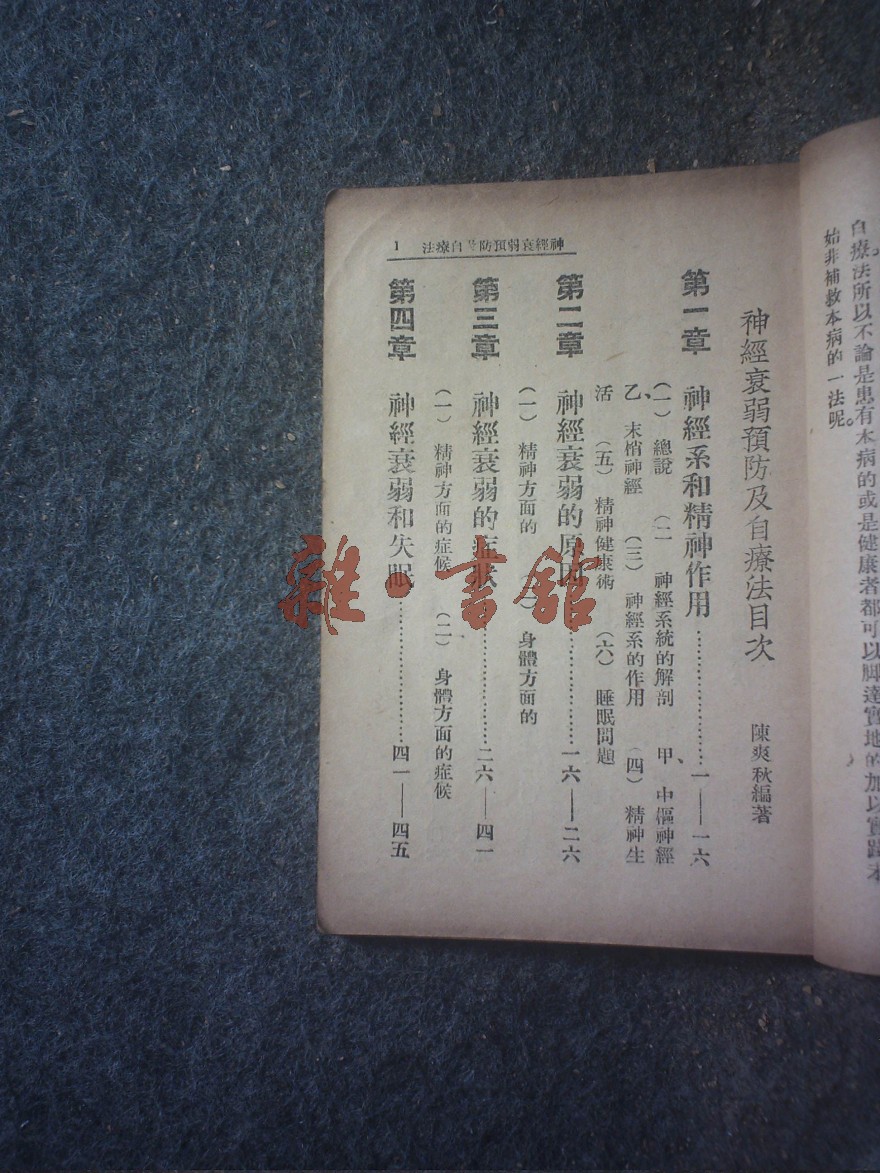 自療法所以不論是患有本病的或是健康者都可以脚達實地的加以實踐未
始非補救本病的一法呢。
神經衰弱預防及自療法 1
神經衰弱預防及自療法目次
陳爽秋編著
第一章 神經系和精神作用…………………一——一六
(一) 總說 (二 神經系統的解剖 甲、中樞神經
乙、末梢神經 (三) 神經系的作用 (四) 精神生
活 (五) 精神健康術 (六) 睡眠問題
第二章 神經衰弱的原因…………………一六——二六
(一) 精神方面的 (二) 身體方面的
第三章 神經衰弱的症狀…………………二六——四一
(一) 精神方面的症候 (二) 身體方面的症候
第四章 神經衰弱和失眠…………………四一——四五
雜·書館